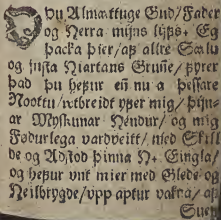 ÞU Almættuge Gud/ Fader
og Herra mijns lijfs. Eg
þacka þier/ af allre Sælu
og insta Hiartans Grune/ fyrer
það þu hefur en nu a þessare
Noottu/ wtbreidt yfer mig/ þijn
ar Myskunar Hendur/ og mig
Fødurlega vardveitt/ med Skill
de og Adstod þinna H. Eingla/
og hefur vnt mier med Glede og
Heilbrygde/ vpp aptur vakna/ af
Sven